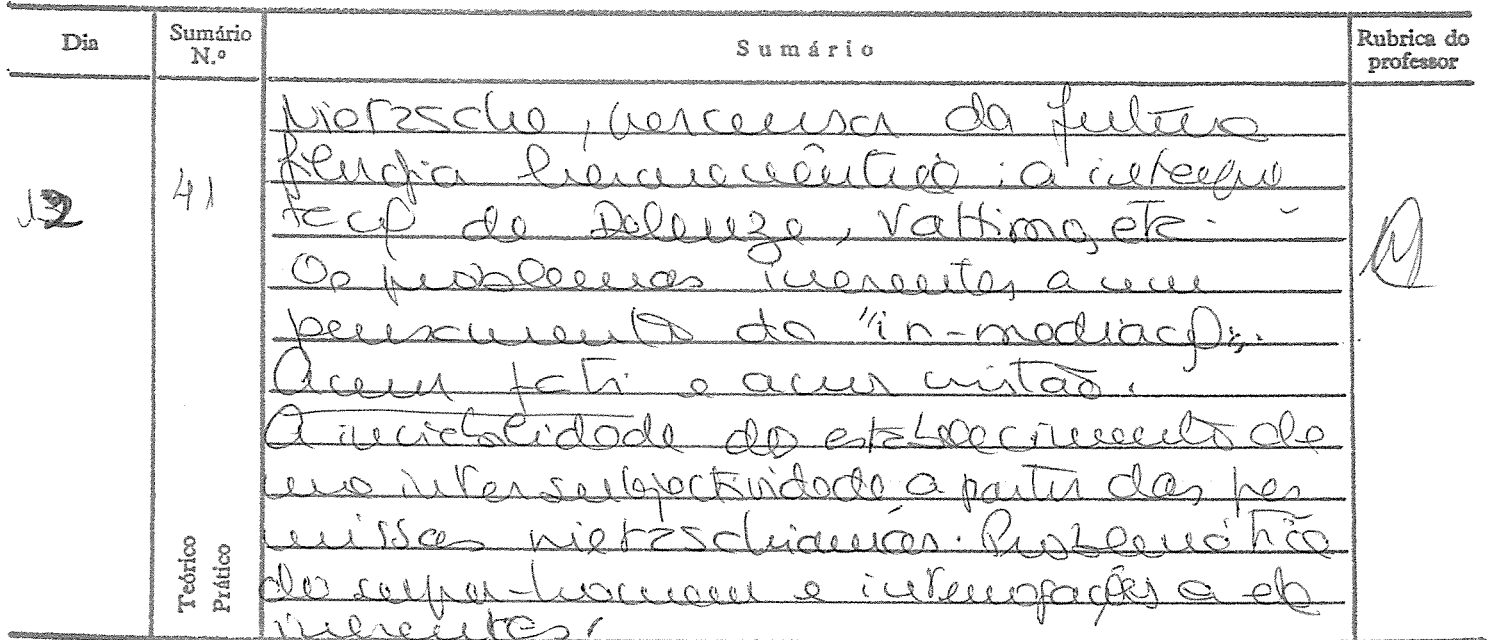 Dia
Sumário N.º
Sumário
Rubrica do professor
12
41
Nietzsche, percursor da futura
filosofia hermenêutica: a interpre
tação de Deleuze, Vattimo, etc.
Os problemas inerentes a um
pensamento da "in-mediação".
Amor fati e amor cristão.
A inviabilidade do estabelecimento de
uma intersubjectividade a partir das pre
missas nietzschianas. Problemática
do super-homem e interrogações a ela
inerentes.
Teórico
Prático